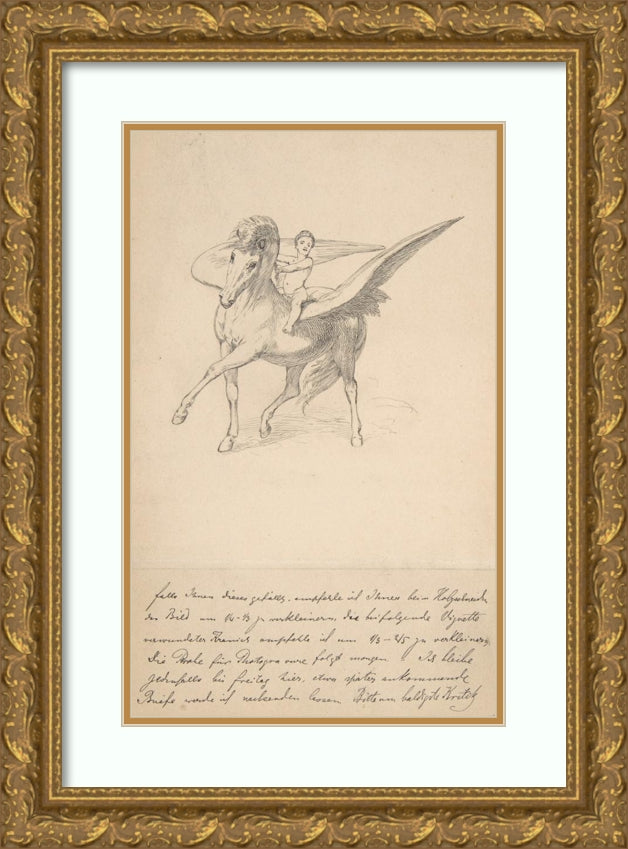 falls Ihnen dieses gefällt, empfehle ich Ihnen beim Holzschneiden
das Bild um 1/4-1/3 zu verkleinern, die beifolgende Vignette
verwundeter Kranich empfehle ich um 1/3-4/5 zu verkleinern,
Die Probe für Photogravure folgt morgen. Ich bleibe
jedenfalls bis Freitag hier, etwas später ankommende
Briefe werde ich nachsenden lassen Bitte um baldigste